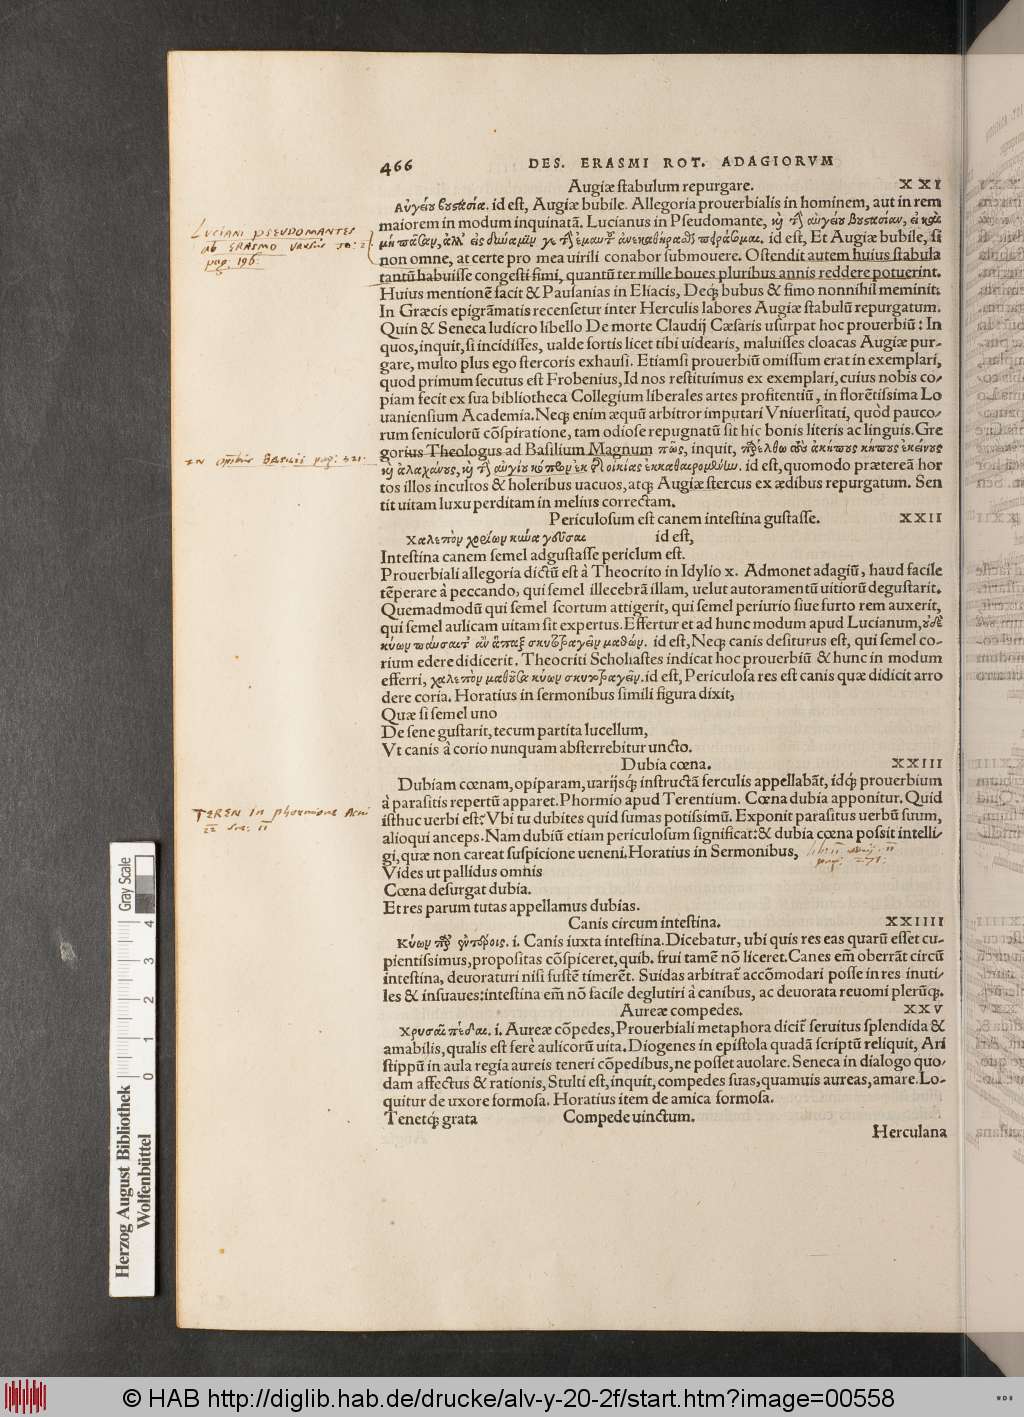 466 DES. ERASMI ROT. ADAGIORVM
Augiæ stabulum repurgare. XXI
Αὐγείου βουστασία. id est, Augiæ bubile. Allegoria prouerbialis in hominem, aut in rem
maiorem in modum inquinatã. Lucianus in Pseudomante, καὶ τὴν αὐγείου βουστασίαν, εἰ καὶ
μὴ πᾶσαν, ἀλλ' εἰς δύναμίν γε τὴν ἐμαυτοῦ ἀνακαθήρασθαι πειράσομαι. id est, Et Augiæ bubile, si
non omne, at certe pro mea uirili conabor submouere. Ostendit autem huius stabula
tantũ habuisse congesti fimi, quantũ ter mille boues pluribus annis reddere potuerint.
Huius mentionẽ facit & Pausanias in Eliacis, Deq́; bubus & fimo nonnihil meminit.
In Græcis epigrãmatis recensetur inter Herculis labores Augiæ stabulũ repurgatum.
Quin & Seneca ludicro libello De morte Claudij Cæsaris usurpat hoc prouerbiũ: In
quos, inquit, si incidisses, ualde fortis licet tibi uidearis, maluisses cloacas Augiæ pur-
gare, multo plus ego stercoris exhausi. Etiamsi prouerbiũ omissum erat in exemplari,
quod primum secutus est Frobenius, Id nos restituimus ex exemplari, cuius nobis co-
piam fecit ex sua bibliotheca Collegium liberales artes profitentiũ, in florẽtissima Lo
uaniensium Academia. Neq; enim æquũ arbitror imputari Vniuersitati, quòd pauco-
rum seniculorũ cõspiratione, tam odiose repugnatũ sit hic bonis literis ac linguis. Gre
gorius Theologus ad Basilium Magnum πῶς, inquit, παρέλθω τοὺς ἀκήπους κήπους ἐκείνους
καὶ ἀλαχάνους, καὶ τὴν αὐγίου κόπρον ἐκ τῆς οἰκίας ἐκκαθαιρομένην. id est, quomodo præterea hor
tos illos incultos & holeribus uacuos, atq; Augiæ stercus ex ædibus repurgatum. Sen
tit uitam luxu perditam in melius correctam.
Periculosum est canem intestina gustasse. XXII
Χαλεπὸν χορίων κύνα γεῦσαι id est,
Intestina canem semel adgustasse periclum est.
Prouerbiali allegoria dictũ est à Theocrito in Idylio x. Admonet adagiũ, haud facile
tẽperare à peccando, qui semel illecebrã illam, uelut autoramentũ uitiorũ degustarit.
Quemadmodũ qui semel scortum attigerit, qui semel periurio siue furto rem auxerit,
qui semel aulicam uitam sit expertus. Effertur et ad hunc modum apud Lucianum, οὐδὲ
κύων παύσαιτ' ἂν ἅπαξ σκυτοτραγεῖν μαθών. id est, Neq; canis desiturus est, qui semel co-
rium edere didicerit. Theocriti Scholiastes indicat hoc prouerbiũ & hunc in modum
efferri, χαλεπὸν μαθοῦσα κύων σκυτοτραγεῖν. id est, Periculosa res est canis quæ didicit arro
dere coria. Horatius in sermonibus simili figura dixit;
Quæ si semel uno
De sene gustarit, tecum partita lucellum,
Vt canis à corio nunquam absterrebitur uncto.
Dubia cœna. XXIII
Dubiam cœnam, opiparam, uarijsq́; instructã ferculis appellabãt, idq́; prouerbium
à parasitis repertũ apparet. Phormio apud Terentium. Cœna dubia apponitur. Quid
isthuc uerbi est? Vbi tu dubites quid sumas potissimũ. Exponit parasitus uerbũ suum,
alioqui anceps. Nam dubiũ etiam periculosum significat: & dubia cœna possit intelli-
gi, quæ non careat suspicione ueneni. Horatius in Sermonibus,
Vides ut pallidus omnis
Cœna desurgat dubia.
Et res parum tutas appellamus dubias.
Canis circum intestina. XXIIII
Κύων παρ' ἐντέροις. i. Canis iuxta intestina. Dicebatur, ubi quis res eas quarũ esset cu-
pientissimus, propositas cõspiceret, quib. frui tamẽ nõ liceret. Canes em̃ oberrãt circũ
intestina, deuoraturi nisi fustẽ timerẽt. Suidas arbitrat̃ accõmodari posse in res inuti-
les & insuaues: intestina em̃ nõ facile deglutiri à canibus, ac deuorata reuomi plerũq;.
Aureæ compedes. XXV
Χρυσαῖ πέδαι. i. Aureæ cõpedes, Prouerbiali metaphora dicit̃ seruitus splendida &
amabilis, qualis est ferè aulicorũ uita. Diogenes in epistola quadã scriptũ reliquit, Ari
stippũ in aula regia aureis teneri cõpedibus, ne posset auolare. Seneca in dialogo quo-
dam affectus & rationis, Stulti est, inquit, compedes suas, quamuis aureas, amare. Lo-
quitur de uxore formosa. Horatius item de amica formosa.
Tenetq́; grata Compede uinctum.
Herculana
LUCIANI PSEUDOMANTES
ab ERASMO
pag. 196
in BASILII pag: 321.
TEREN in phormione
pag: 271.
Gray Scale
0 1 2 3 4
Herzog August Bibliothek
Wolfenbüttel
© HAB http://diglib.hab.de/drucke/alv-y-20-2f/start.htm?image=00558